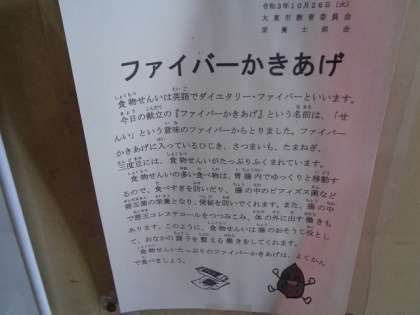 令和3年10月26日（火）
大東市教育委員会
栄養士部会
ファイバーかきあげ
食物せんいは英語でダイエタリー・ファイバーといいます。
今日の献立の『ファイバーかきあげ』という名前は、「せ
んい」という意味のファイバーからとりました。ファイバー
かきあげに入っているひじき、さつまいも、たまねぎ、
三度豆には、食物せんいがたっぷりふくまれています。
食物せんいの多い食べ物は、胃腸内でゆっくりと移動す
るので、食べすぎを防いだり、腸の中のビフィズス菌など
善玉菌の栄養となり、便秘を防いでくれます。また、腸の中
で悪玉コレステロールをつつみこみ、体の外に出す働きも
あります。このように、食物せんいは腸のおそうじ役とし
て、おなかの調子を整える働きをしてくれます。
食物せんいたっぷりのファイバーかきあげは、よくかん
で食べましょう。